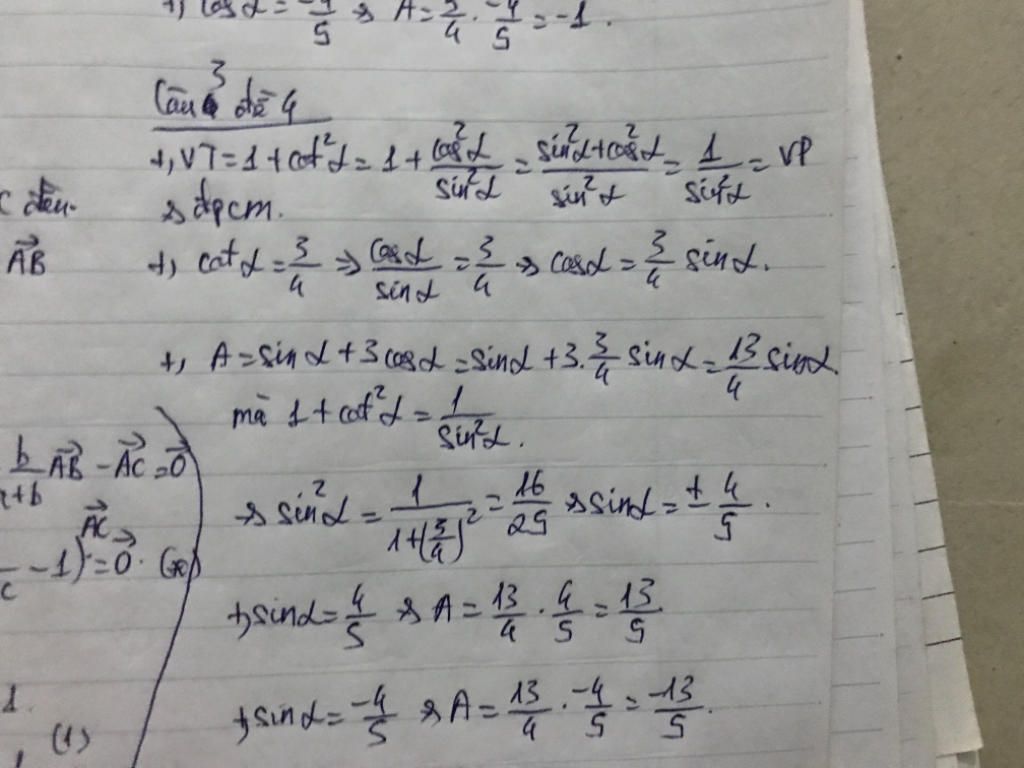 +, cosα = -4/5 => A = 5/4 . -4/5 = -1.
Câu 3 đề 4
+, VT = 1 + cot²α = 1 + cos²α/sin²α = sin²α+cos²α/sin²α = 1/sin²α = VP
=> đpcm.
C đều.
AB→
+, cotα = 3/4 => cosα/sinα = 3/4 => cosα = 3/4 sinα.
+, A = sinα + 3cosα = sinα + 3.3/4 sinα = 13/4 sinα.
mà 1 + cot²α = 1/sin²α.
b/a+b AB→ - AC→ = 0→
=> sin²α = 1/1+(3/4)² = 16/25 => sinα = ± 4/5.
AC→
/c - 1) = 0. (*)
+, sinα = 4/5 => A = 13/4 . 4/5 = 13/5
+, sinα = -4/5 => A = 13/4 . -4/5 = -13/5.
1
(1)